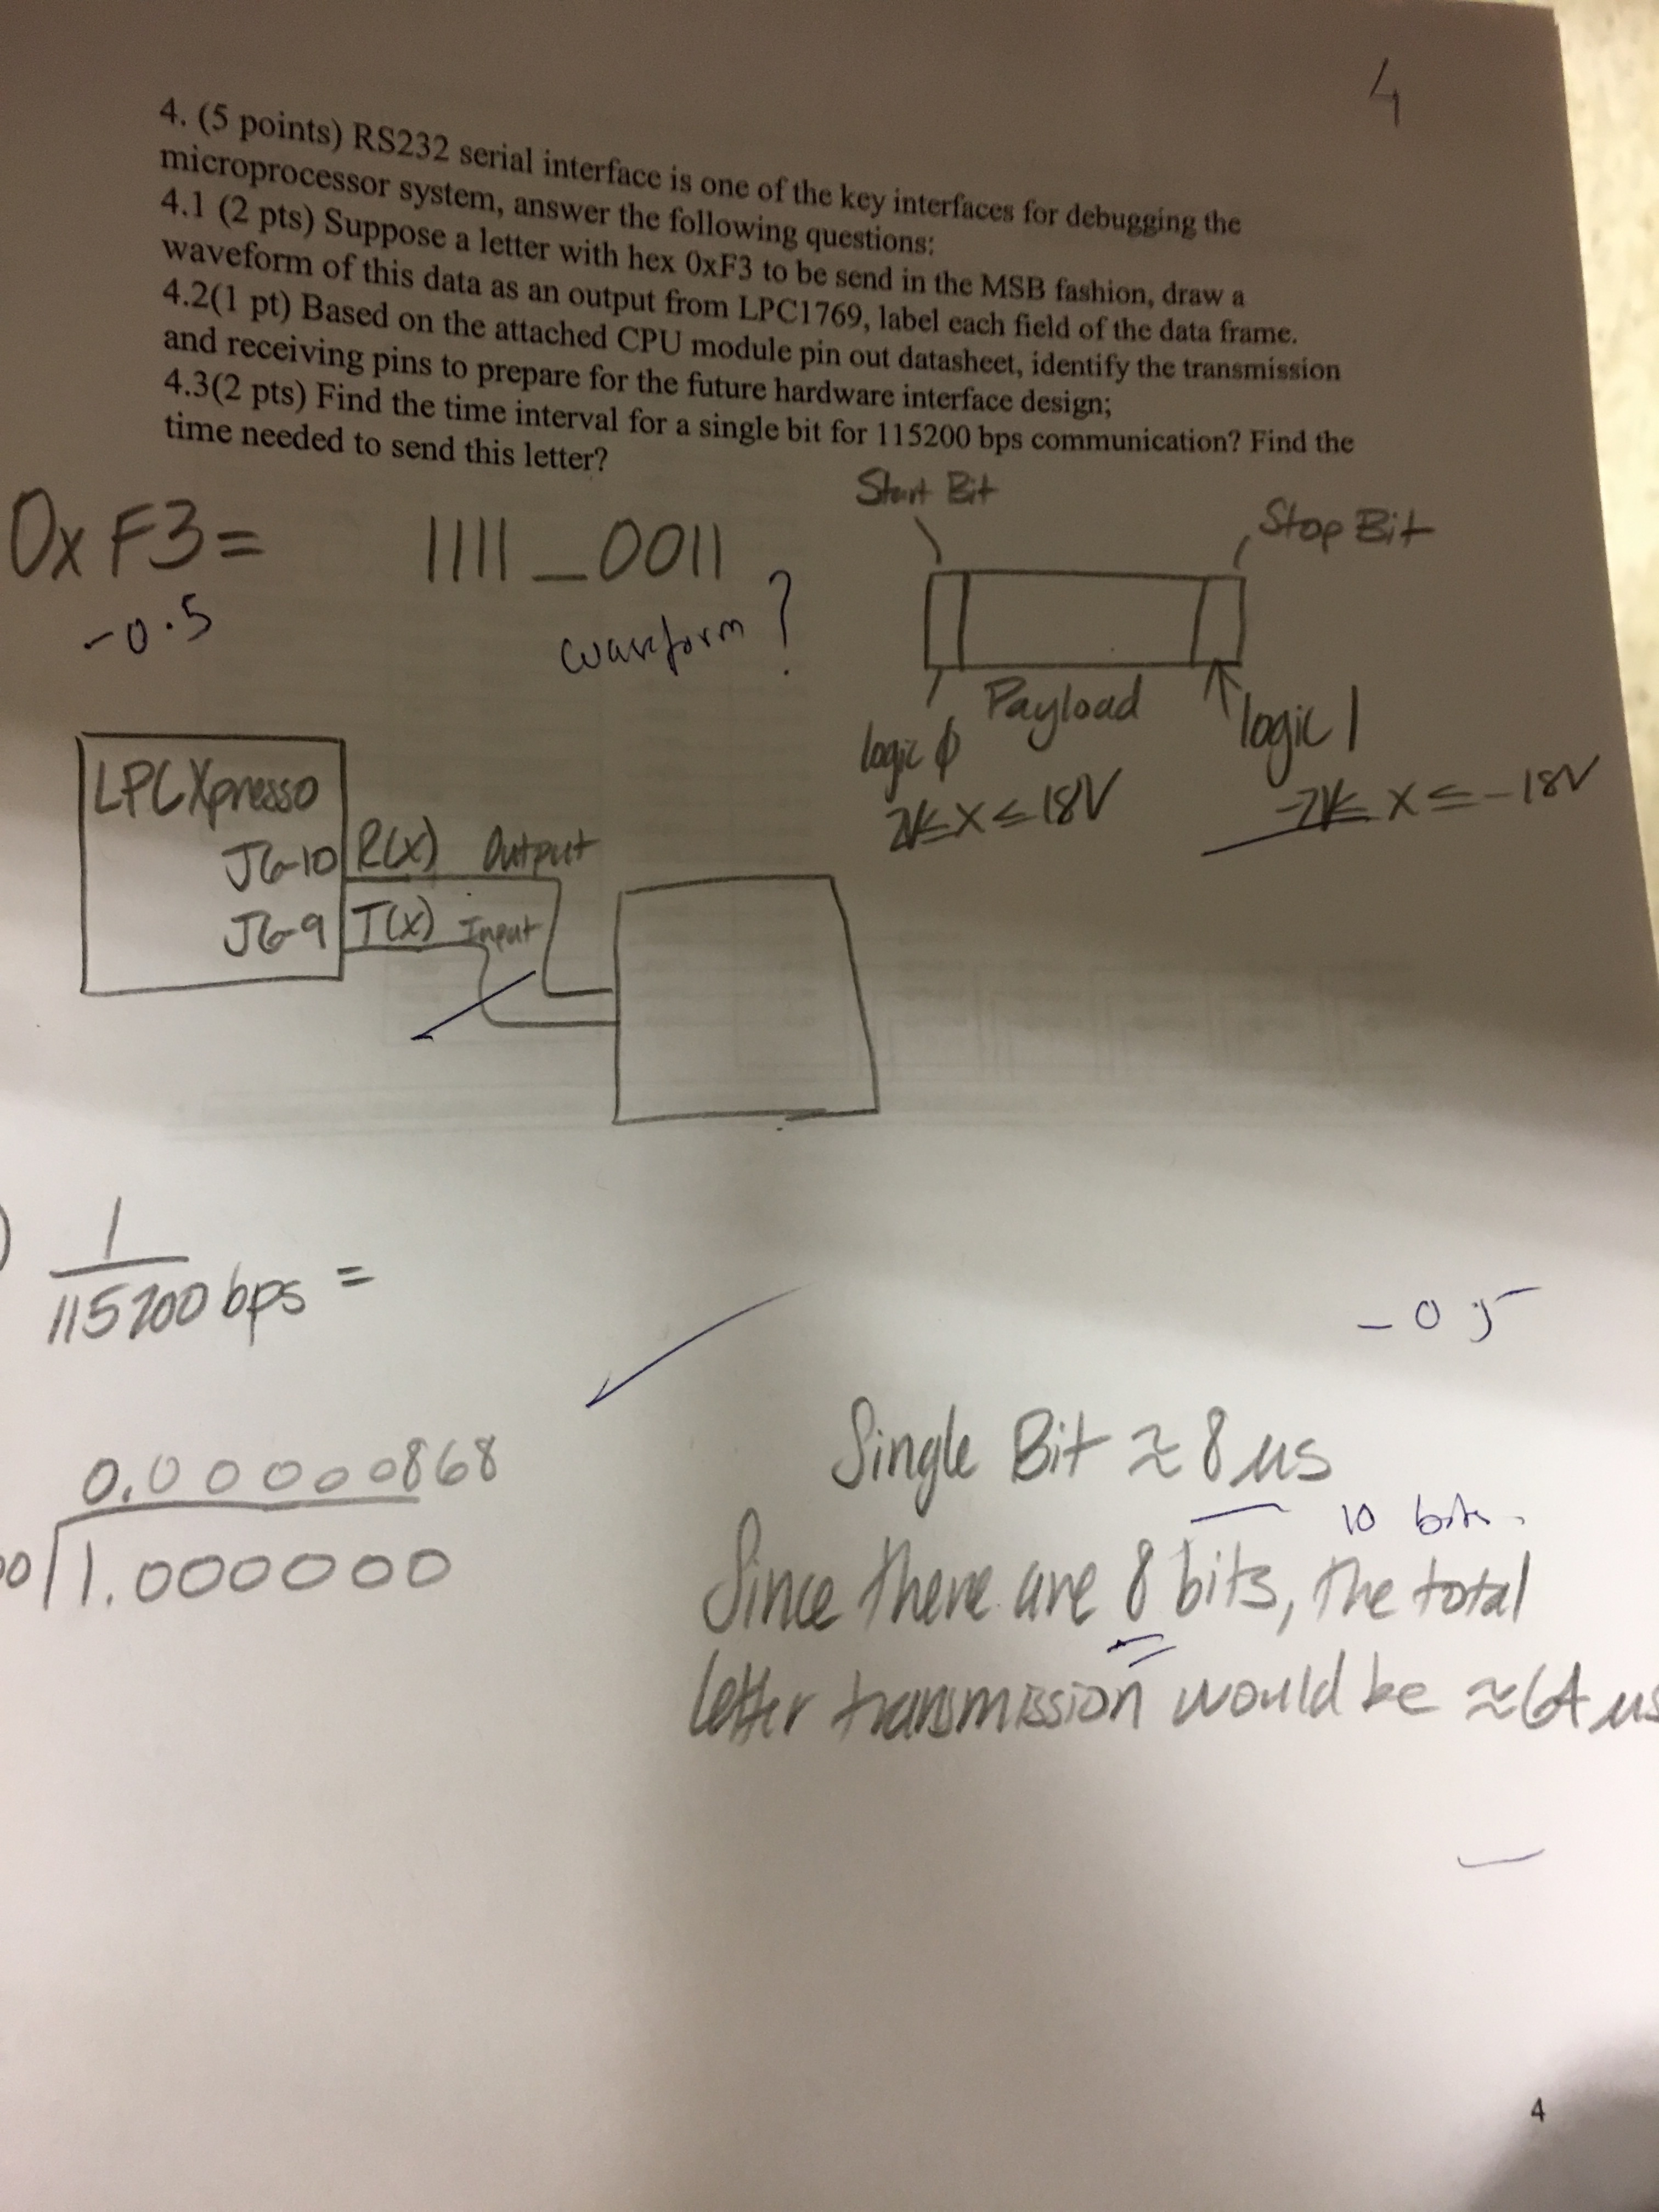 4
4. (5 points) RS232 serial interface is one of the key interfaces for debugging the
microprocessor system, answer the following questions:
4.1 (2 pts) Suppose a letter with hex 0xF3 to be send in the MSB fashion, draw a
waveform of this data as an output from LPC1769, label each field of the data frame.
4.2(1 pt) Based on the attached CPU module pin out datasheet, identify the transmission
and receiving pins to prepare for the future hardware interface design;
4.3(2 pts) Find the time interval for a single bit for 115200 bps communication? Find the
time needed to send this letter?
Start Bit
Stop Bit
0xF3= 1111_0011
-0.5
waveform?
Payload
logic ϕ
logic 1
≤ X ≤ 18V
X ≤ -18V
LPCXpresso
J6-10 R(x) Output
J6-9 T(x) Input
)
1
115200 bps =
-05
0.00000868
00 1.000000
Single Bit ≈ 8 µs
10 bits.
Since there are 8 bits, the total
letter transmission would be ≈64 µs
4